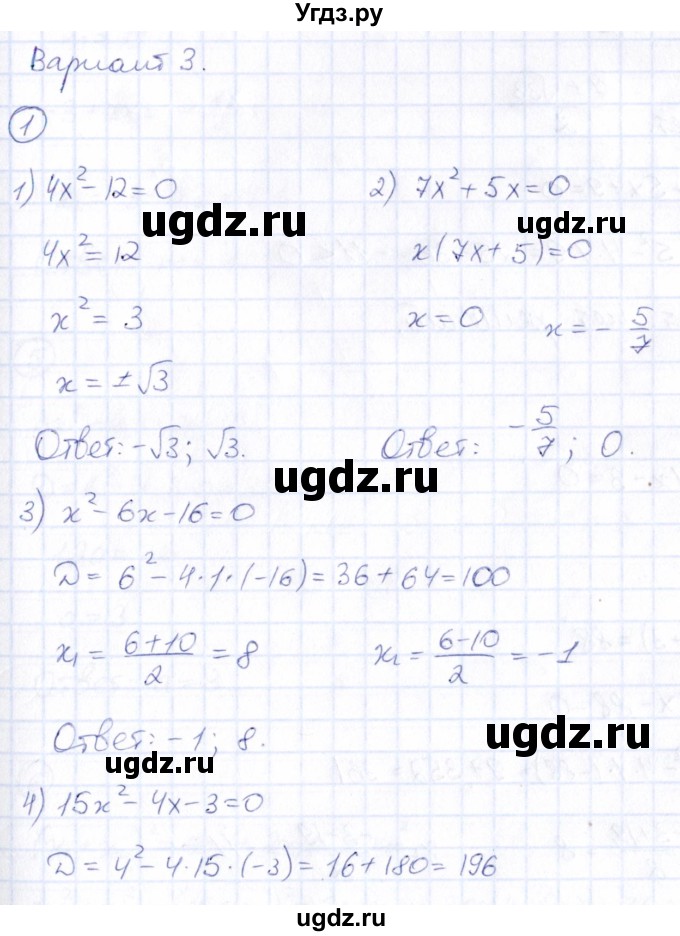 Угдз.ру
Вариант 3.
1
1) 4x² - 12 = 0
ugdz.ru
4x² = 12
x² = 3
x = ±√3
Ответ: -√3; √3.
2) 7x² + 5x = 0
ugdz.ru
x(7x + 5) = 0
x = 0 x = - 5/7
Ответ: - 5/7; 0.
ugdz.ru
3) x² - 6x - 16 = 0
D = 6² - 4·1·(-16) = 36 + 64 = 100
x₁ = (6+10)/2 = 8 x₂ = (6-10)/2 = -1
Ответ: -1; 8.
ugdz.ru
ugdz.ru
4) 15x² - 4x - 3 = 0
D = 4² - 4·15·(-3) = 16 + 180 = 196
ugdz.ru